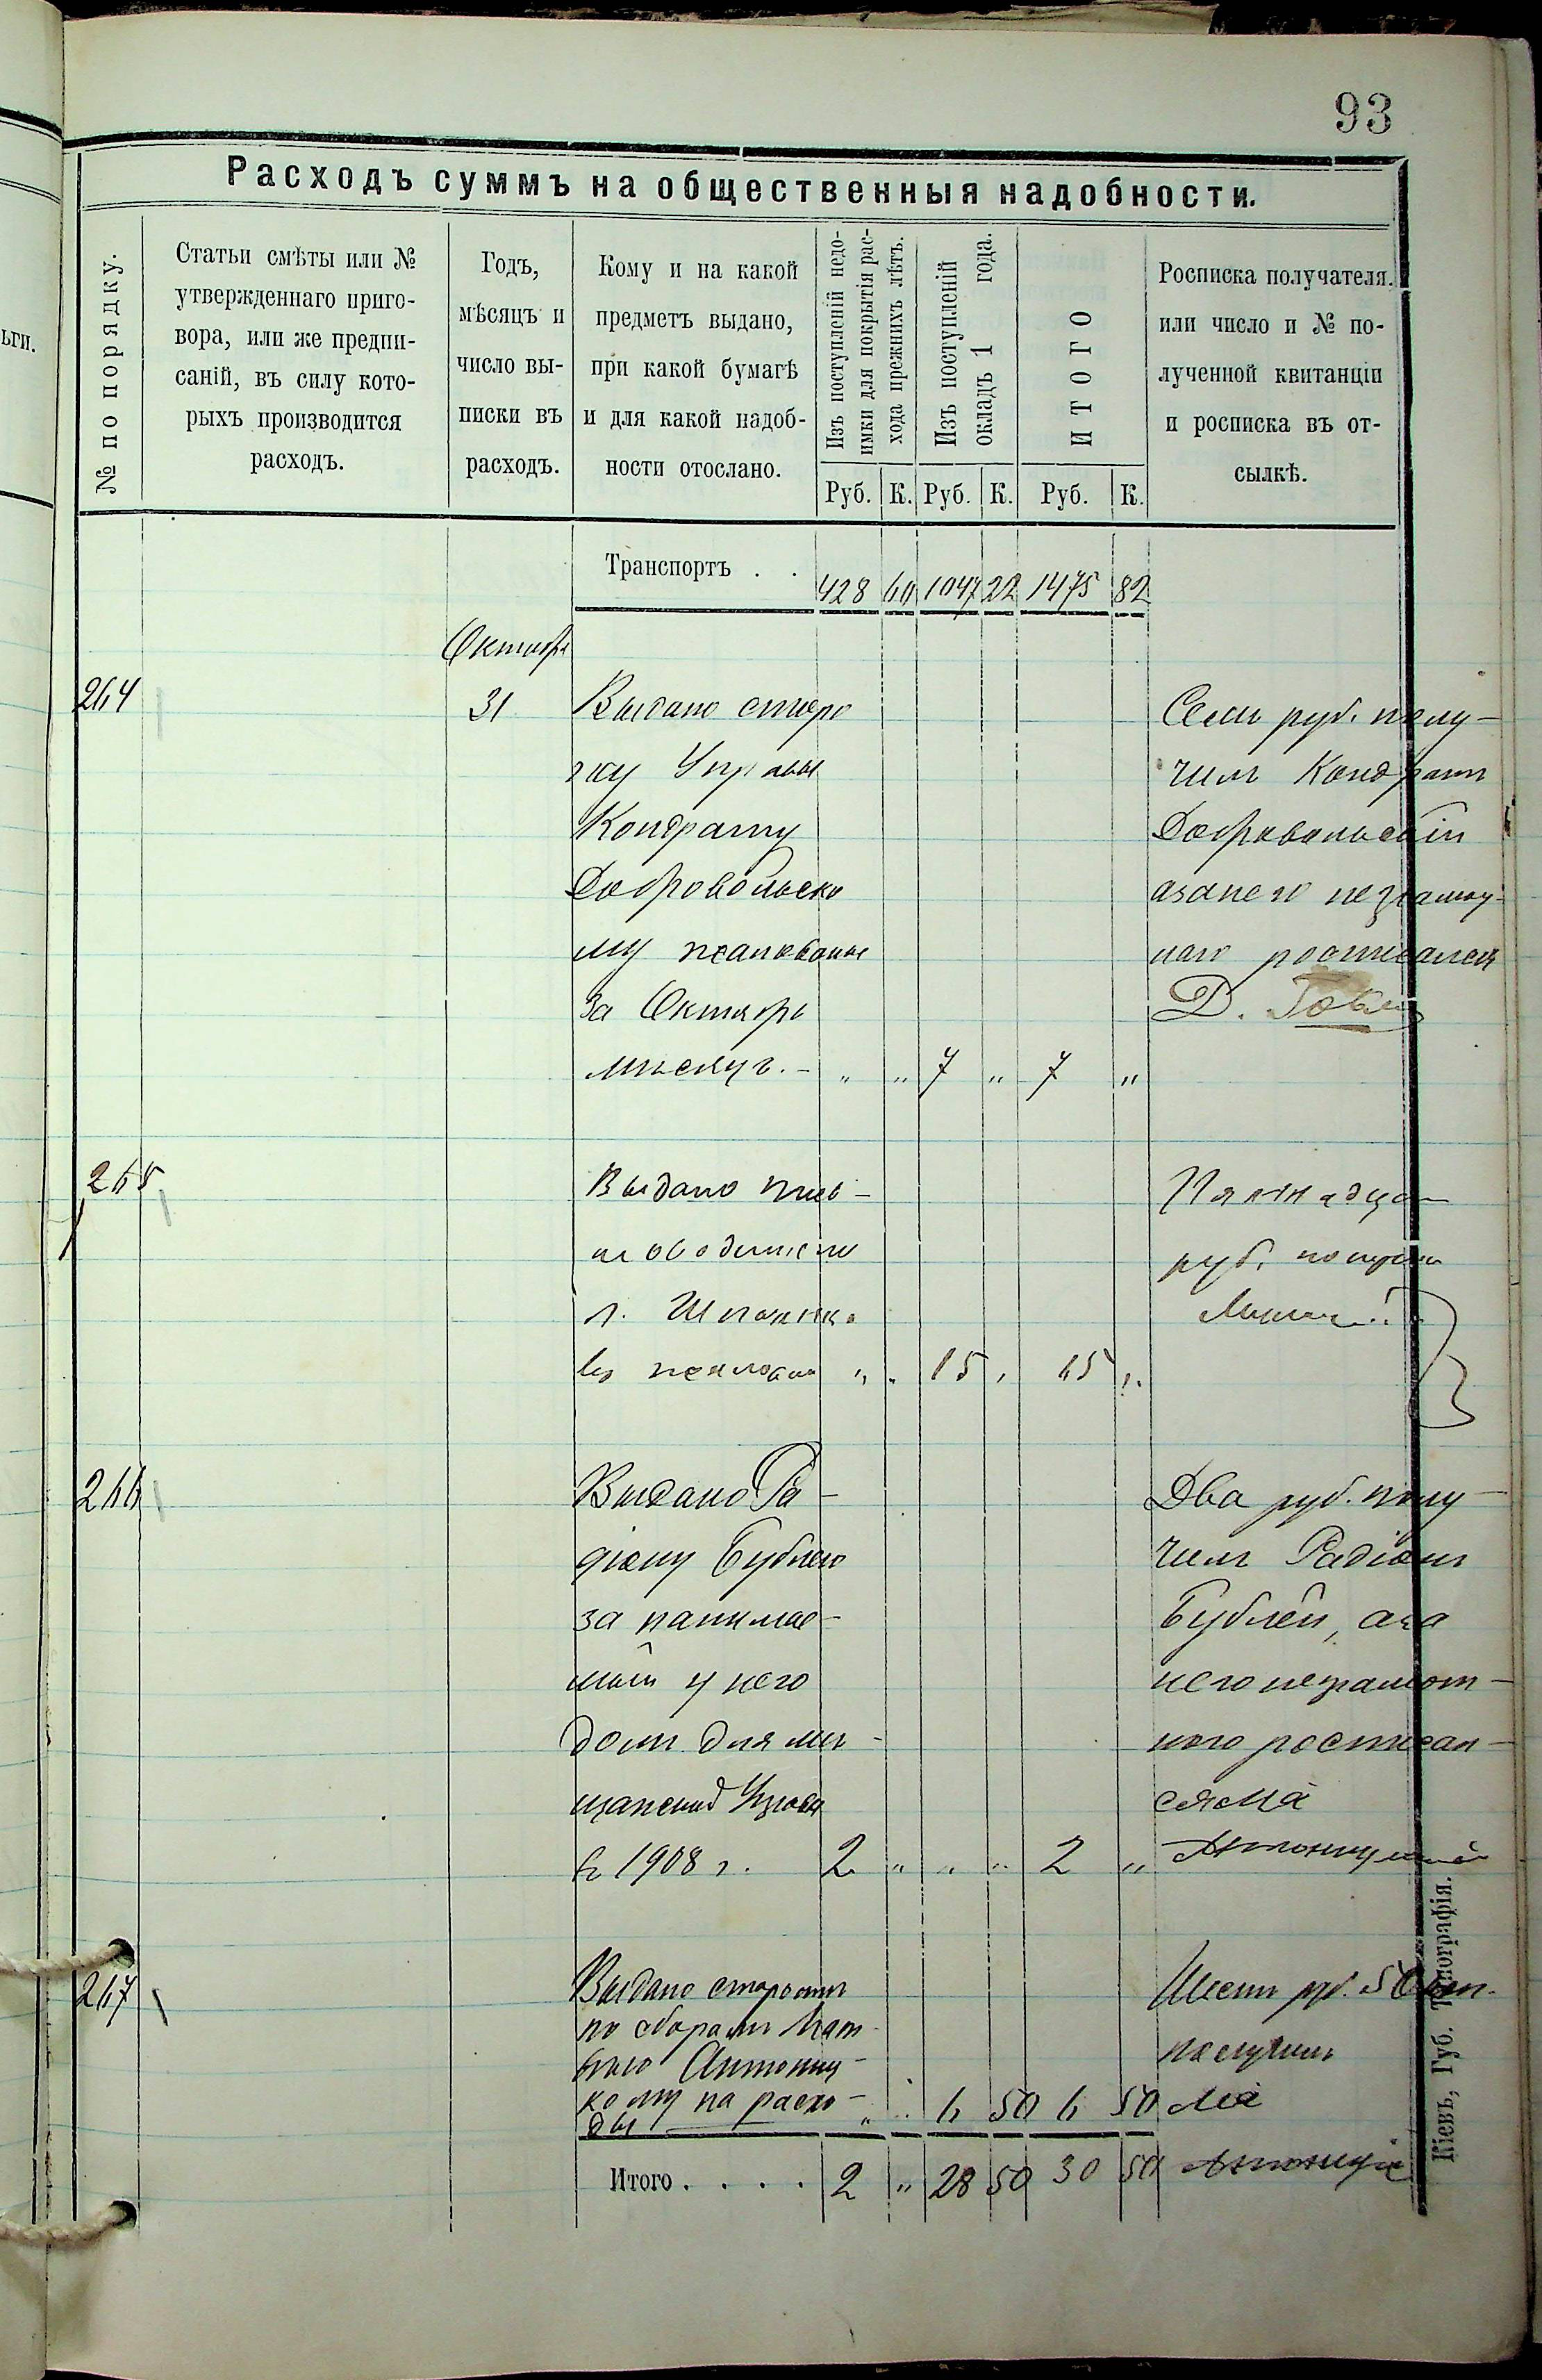 93
ьги.
Расходъ суммъ на общественныя надобности.
№ по порядку.
Статьи смѣты или №
утвержденнаго приго-
вора, или же предпи-
саній, въ силу кото-
рыхъ производится
расходъ.
Годъ,
мѣсяцъ и
число вы-
писки въ
расходъ.
Кому и на какой
предметъ выдано,
при какой бумагѣ
и для какой надоб-
ности отослано.
Изъ поступленій недо-
имки для покрытія рас-
хода прежнихъ лѣтъ.
Изъ поступленій
окладъ 1 года.
ИТОГО
Росписка получателя.
или число и № по-
лученной квитанціи
и росписка въ от-
сылкѣ.
Руб. К. Руб. К. Руб. К.
Транспортъ . . 428 60 1047 22 1475 82
Октября
264 31 Выдано сторо
жу Управы
Кондрату
Добровольско
му жалованье
за Октябрь
мѣсяцъ. - " " 7 " 7 "
Семь руб. полу-
чилъ Кондратъ
Добровольскій
азанего неграмот-
наго росписался
Д.
265 Выдано пись-
моводителю
г.
въ жалован " " 15 " 15 "
Пятнадца
руб. получи
266 Выдано Ра-
діону Бублею
за нанимае-
мый у него
домъ для мѣ-
щанской Управы
въ 1908 г. 2 " " " 2 "
Два руб. полу-
чилъ Радіонъ
Бублей, аза
него неграмот-
ного росписал-
ся
267 Выдано старостѣ
по сборамъ Мат-
вѣю Антониц-
кому на расхо-
ды " " 6 50 6 50
Шесть руб. 50 коп.
получилъ
Итого . . . . 2 " 28 50 30 50
Кіевъ, Губ. Типографія.